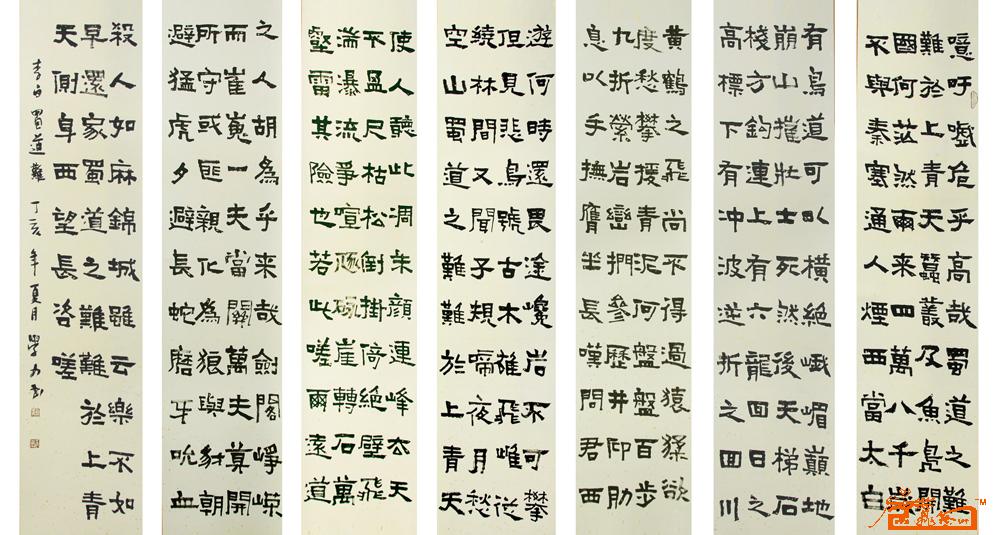 噫吁嚱危乎高哉蜀道之難
難於上青天蠶叢及魚鳧開
國何茫然爾来四萬八千歲
不與秦塞通人煙西當太白
有鳥道可以橫絕峨嵋巔地
崩山摧壯士死然後天梯石
棧方鈎連上有六龍回日之
高標下有冲波逆折之回川
黃鶴之飛尚不得過猿猱欲
度愁攀援青泥何盤盤百步
九折縈岩巒捫參歷井仰肋
息以手撫膺坐長嘆問君西
遊何時還畏途巉岩不可攀
但見悲鳥號古木雄飛雌從
繞林間又聞子規啼夜月愁
空山蜀道之難難於上青天
使人聽此凋朱顏連峰去天
不盈尺枯松倒掛倚絕壁飛
湍瀑流爭喧豗砯崖轉石萬
壑雷其險也若此嗟爾遠道
之人胡為乎来哉劍閣崢嶸
而崔嵬一夫當關萬夫莫開
所守或匪親化為狼與豺朝
避猛虎夕避長蛇磨牙吮血
殺人如麻錦城雖云樂不如
早還家蜀道之難難於上青
天側身西望長咨嗟
李白蜀道難 丁亥年夏月 學力書